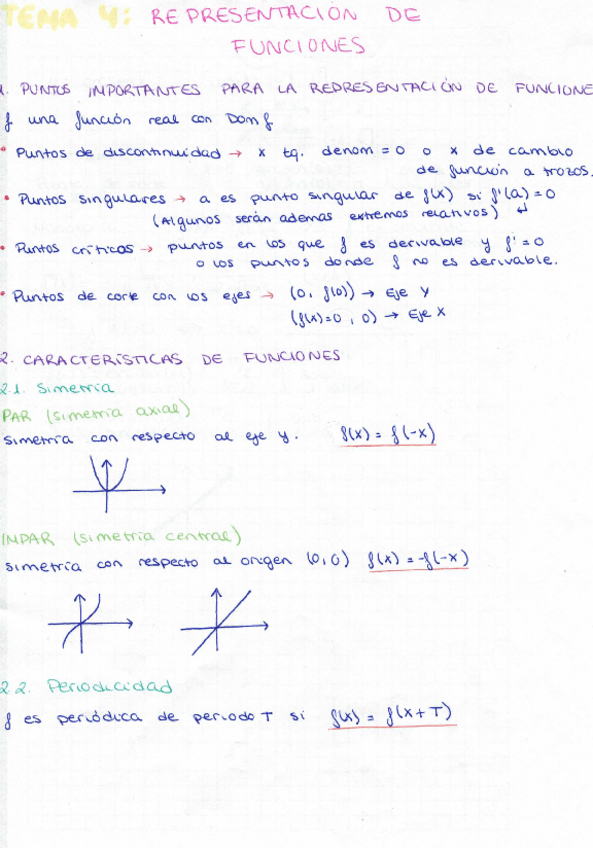 TEMA 4: REPRESENTACIÓN DE
FUNCIONES
1. PUNTOS IMPORTANTES PARA LA REPRESENTACIÓN DE FUNCIONE
f una función real con Dom f
• Puntos de discontinuidad → x tq. denom = 0 o x de cambio
de función a trozos.
• Puntos singulares → a es punto singular de f(x) si f'(a) = 0
(Algunos serán ademas extremos relativos) ↵
• Puntos críticos → puntos en los que f es derivable y f' = 0
o los puntos donde f no es derivable.
• Puntos de corte con los ejes → (0, f(0)) → Eje Y
(f(x)=0, 0) → Eje X
2. CARACTERÍSTICAS DE FUNCIONES
2.1. Simetría
PAR (simetría axial)
simetría con respecto al eje y. f(x) = f(-x)
INPAR (simetría central)
simetría con respecto al origen (0,0) f(x) = -f(-x)
2.2. Periodicidad
f es periódica de periodo T si f(x) = f(x+T)